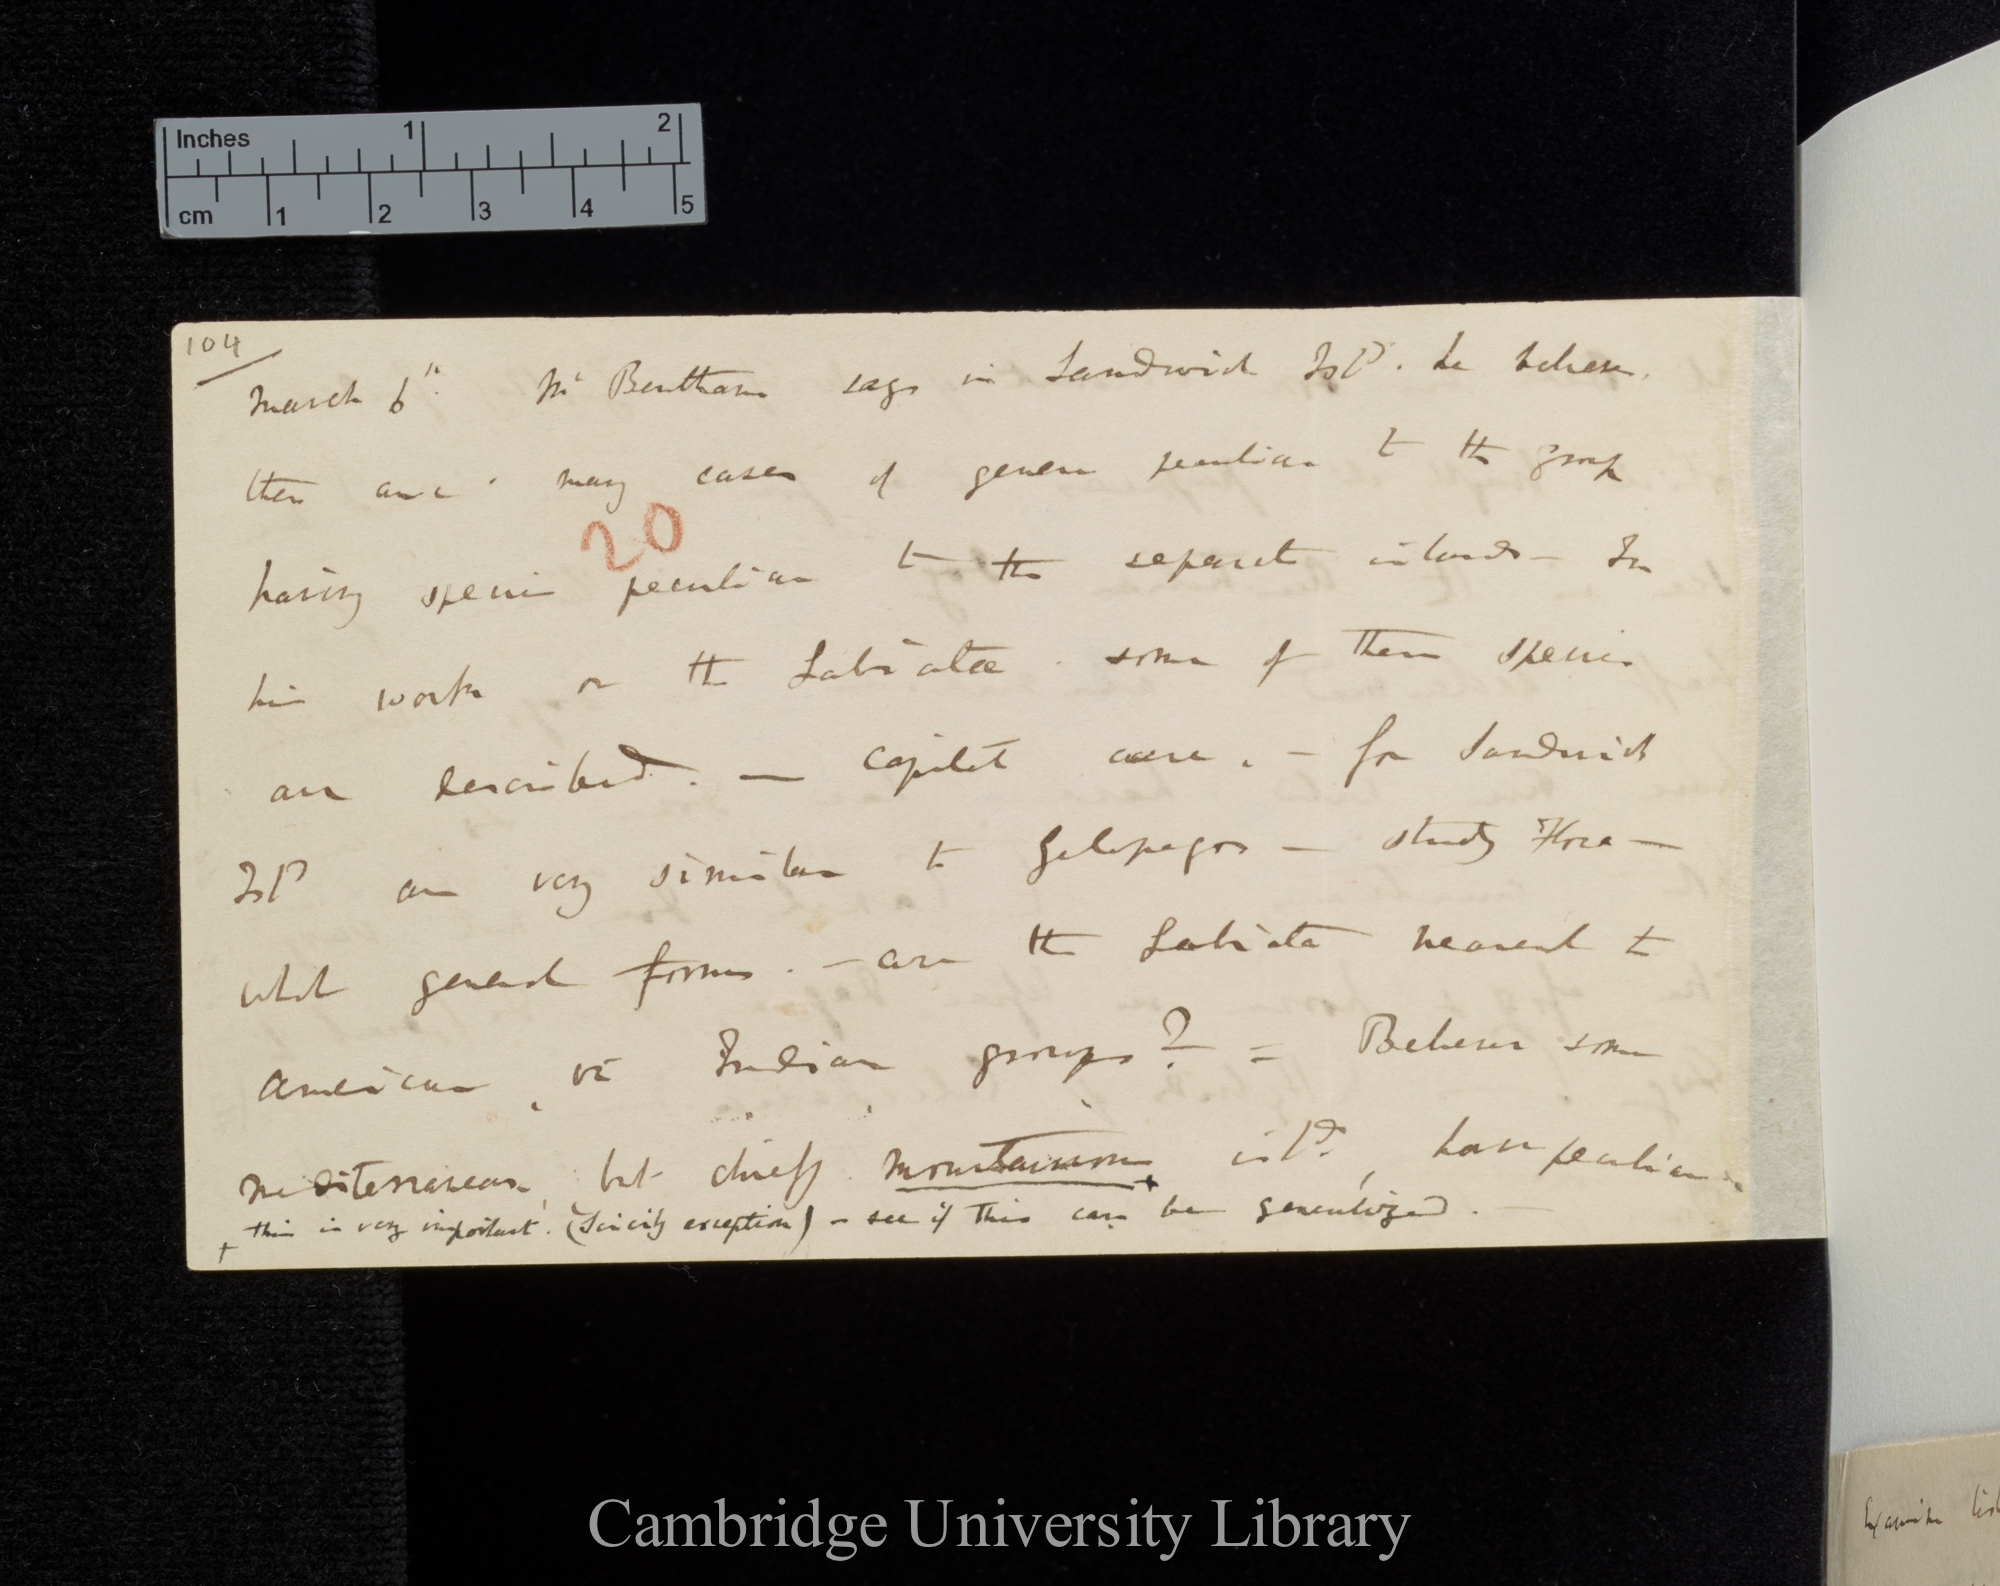 Inches 1 2
cm 1 2 3 4 5
104
March 6th. Mr Bentham says in Sandwich Isd. he believes.
there are many cases of genera peculiar to the group
20
having species peculiar to the separate islands — In
his work on the Labiatae. some of these species
are described. — Capital case. — for Sandwich
Isd are very similar to Galapagos — study Flora —
what general forms. — are the Labiatae nearest to
American or Indian groups? = Believes some
mediterranean, but chiefly mountainous + isld., have peculiar
+ this is very important. (Sicily exception) — see if this can be generalized. —
Examine list
Cambridge University Library